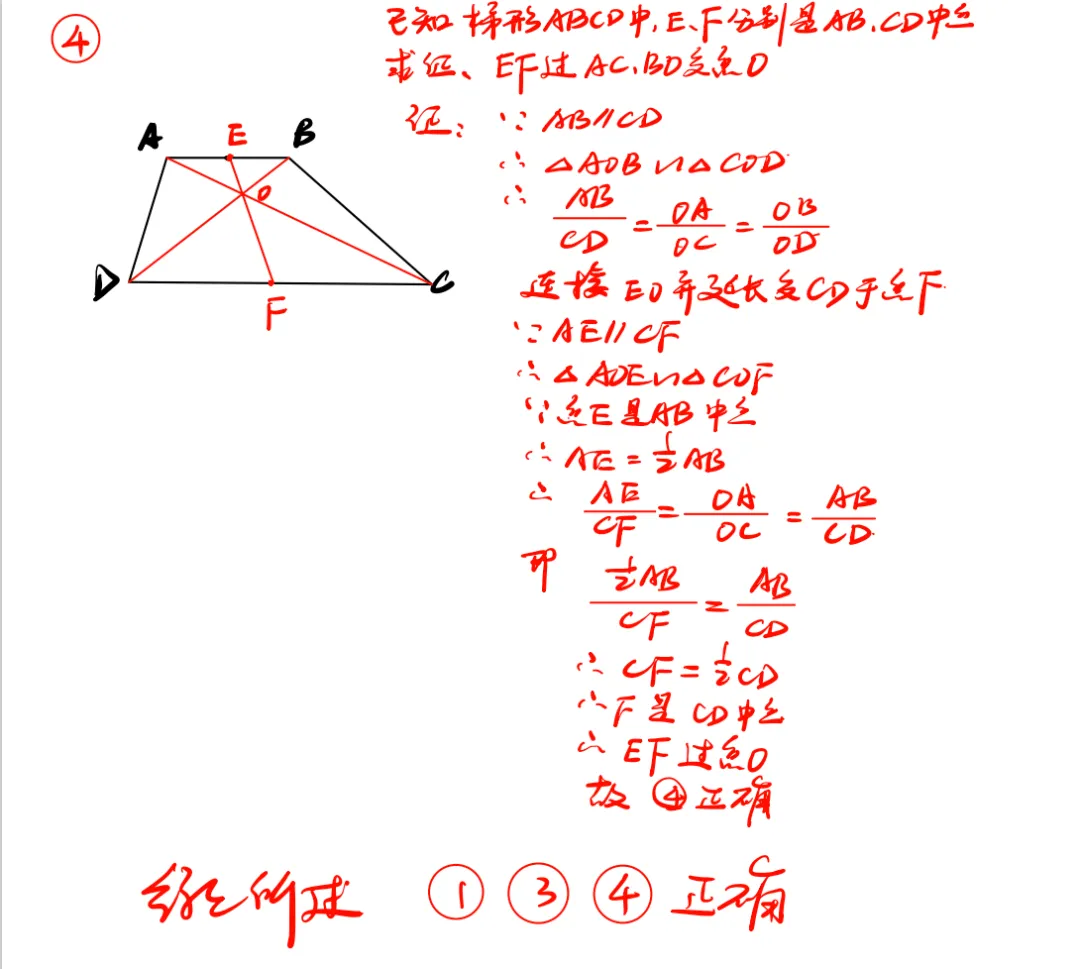 ④
已知梯形ABCD中,E、F分别是AB、CD中点
求证、EF过AC、BD交点O
A E B
O
D F C
证: ∵ AB∥CD
∴ △AOB∽△COD
∴ AB/CD = OA/OC = OB/OD
连接EO并延长交CD于点F
∵ AE∥CF
∴ △AOE∽△COF
∵ 点E是AB中点
∴ AE = 1/2 AB
∴ AE/CF = OA/OC = AB/CD
即 1/2 AB/CF = AB/CD
∴ CF = 1/2 CD
∴ F是CD中点
∴ EF过点O
故④正确
综上所述 ① ③ ④ 正确